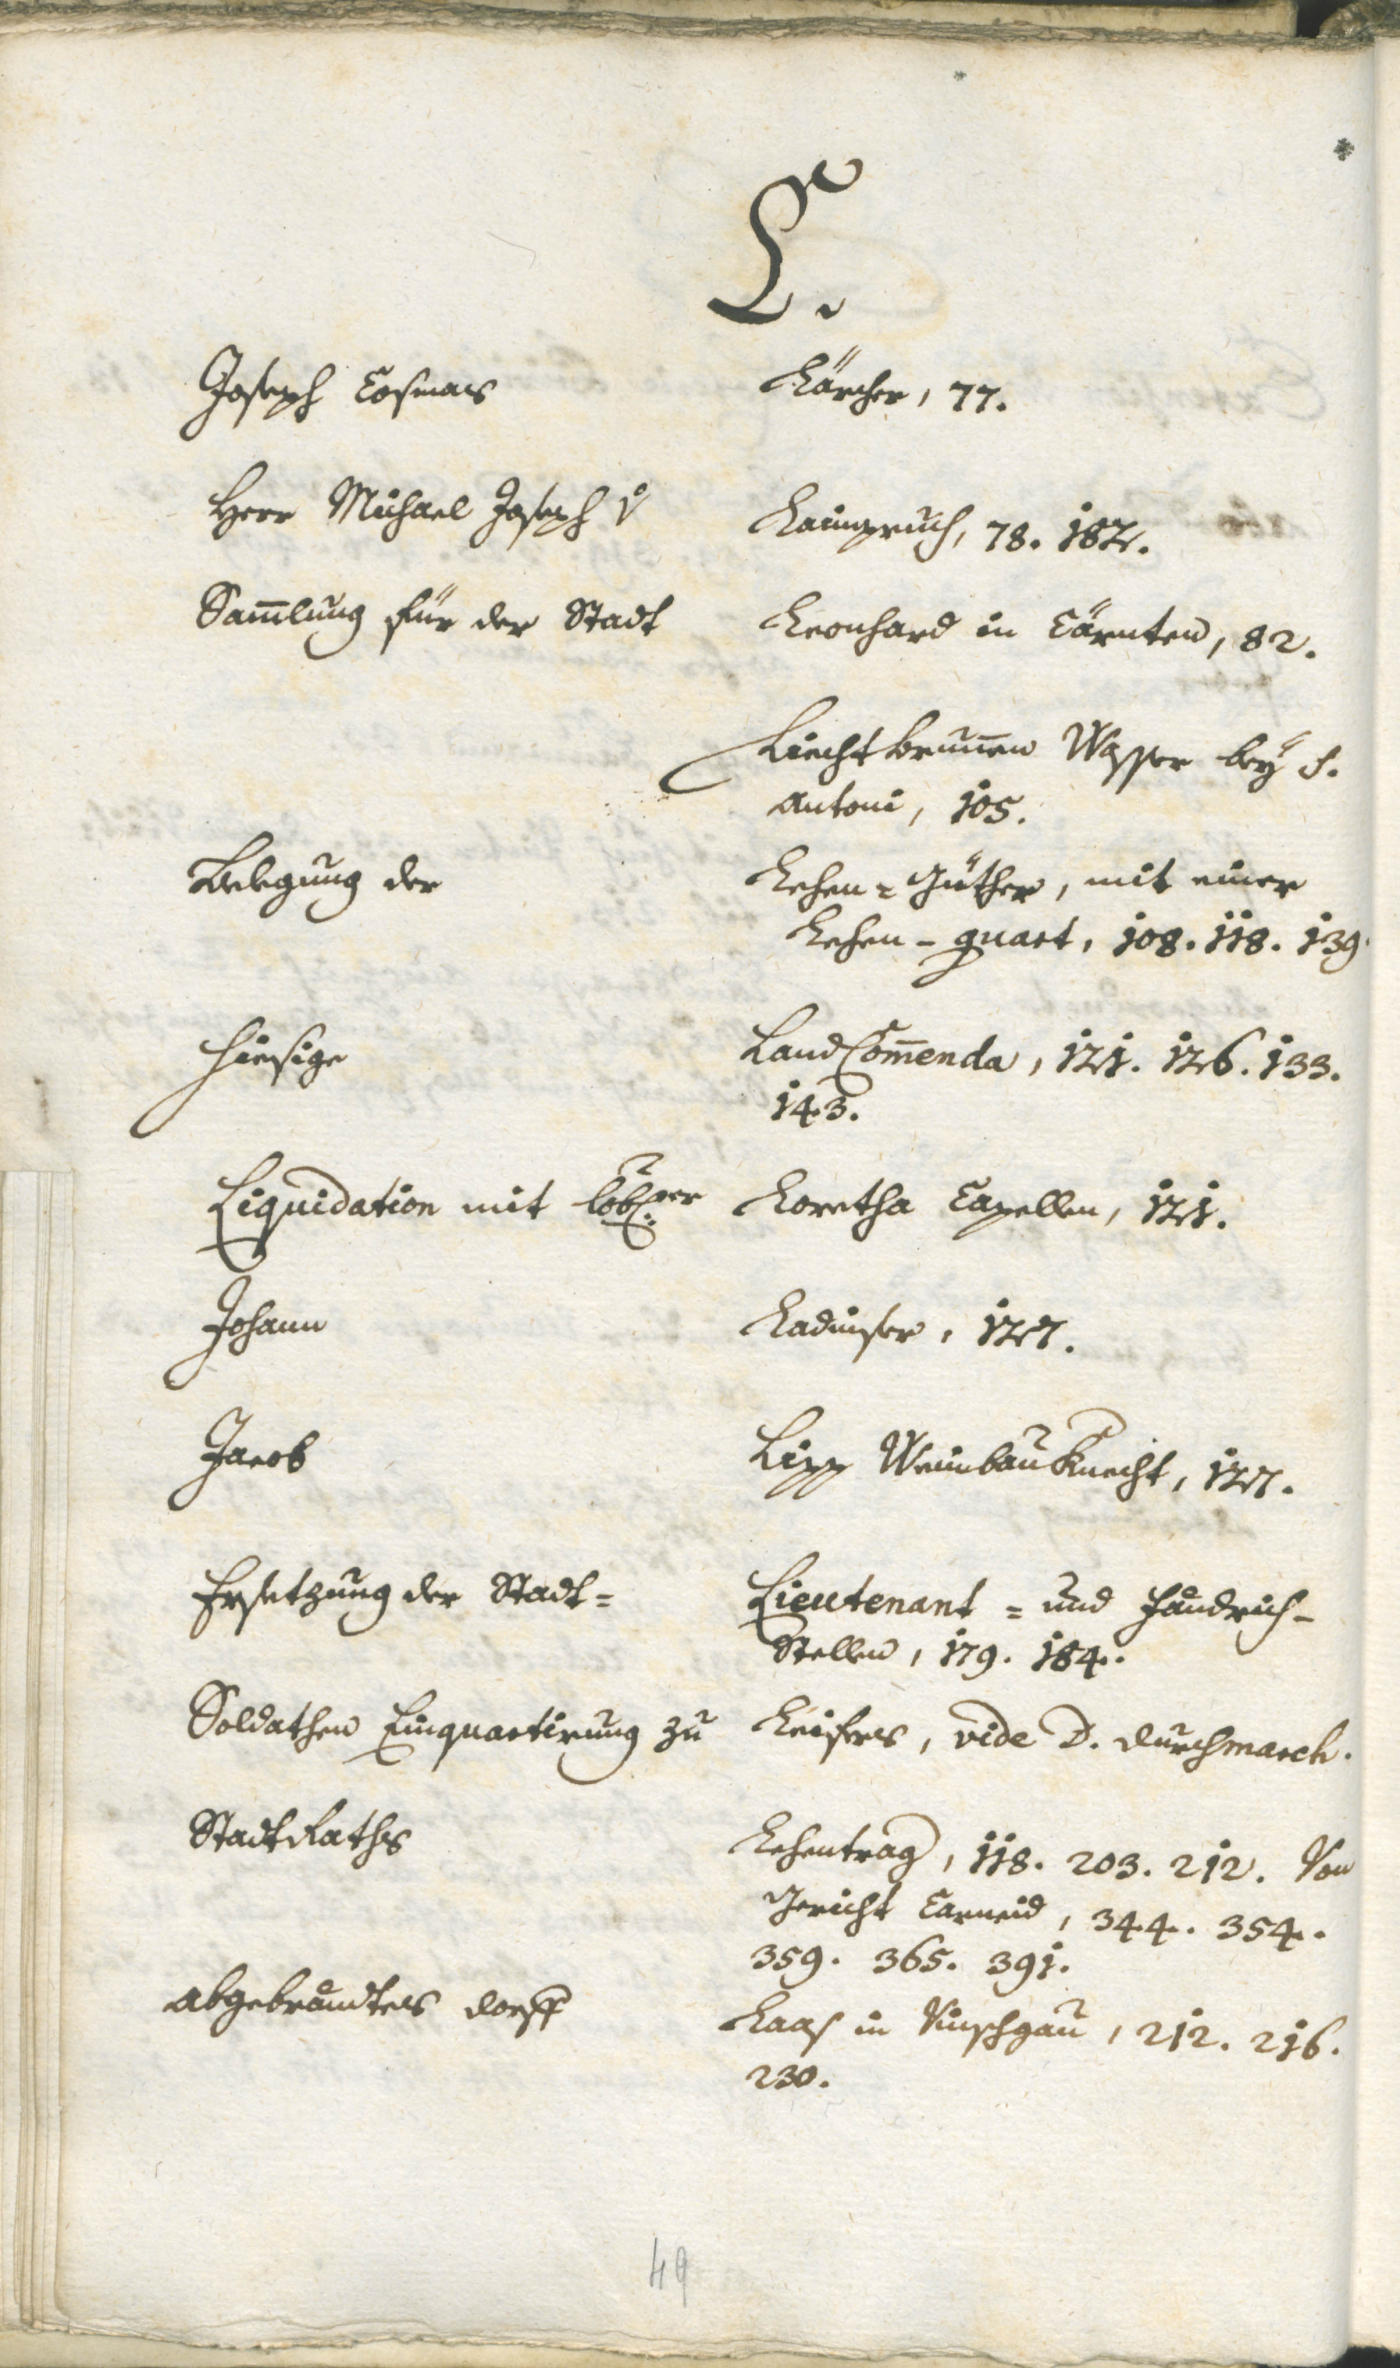 L.
Joseph Cosmas Lärcher, 77.
Herr Michael Joseph v Laimpruch, 78. 182.
Sam̄lung für der Stadt Leonhard in Cärnten, 82.
Liechtbrun̄en Wasser bey S.
Antoni, 105.
Belegung der Lehen-Güther, mit einer
Lehen-quart, 108. 118. 139.
hiesige LandCom̄enda, 121. 126. 133.
143.
Liquidation mit löbl:er Loretha Capellen, 121.
Johann Ladinser, 127.
Jacob Lipp WeinbauKnecht, 127.
Ersetzung der Stadt= Lieutenant = und Fändrich-
Stellen, 179. 184.
Soldathen Einquartirung zu Leifers, vide D. durchmarch.
StadtRaths Lehentrag, 118. 203. 212. Von
Gericht Carneid, 344. 354.
359. 365. 391.
abgebrandtes dorff Laas in Vinschgau, 212. 216.
230.
49